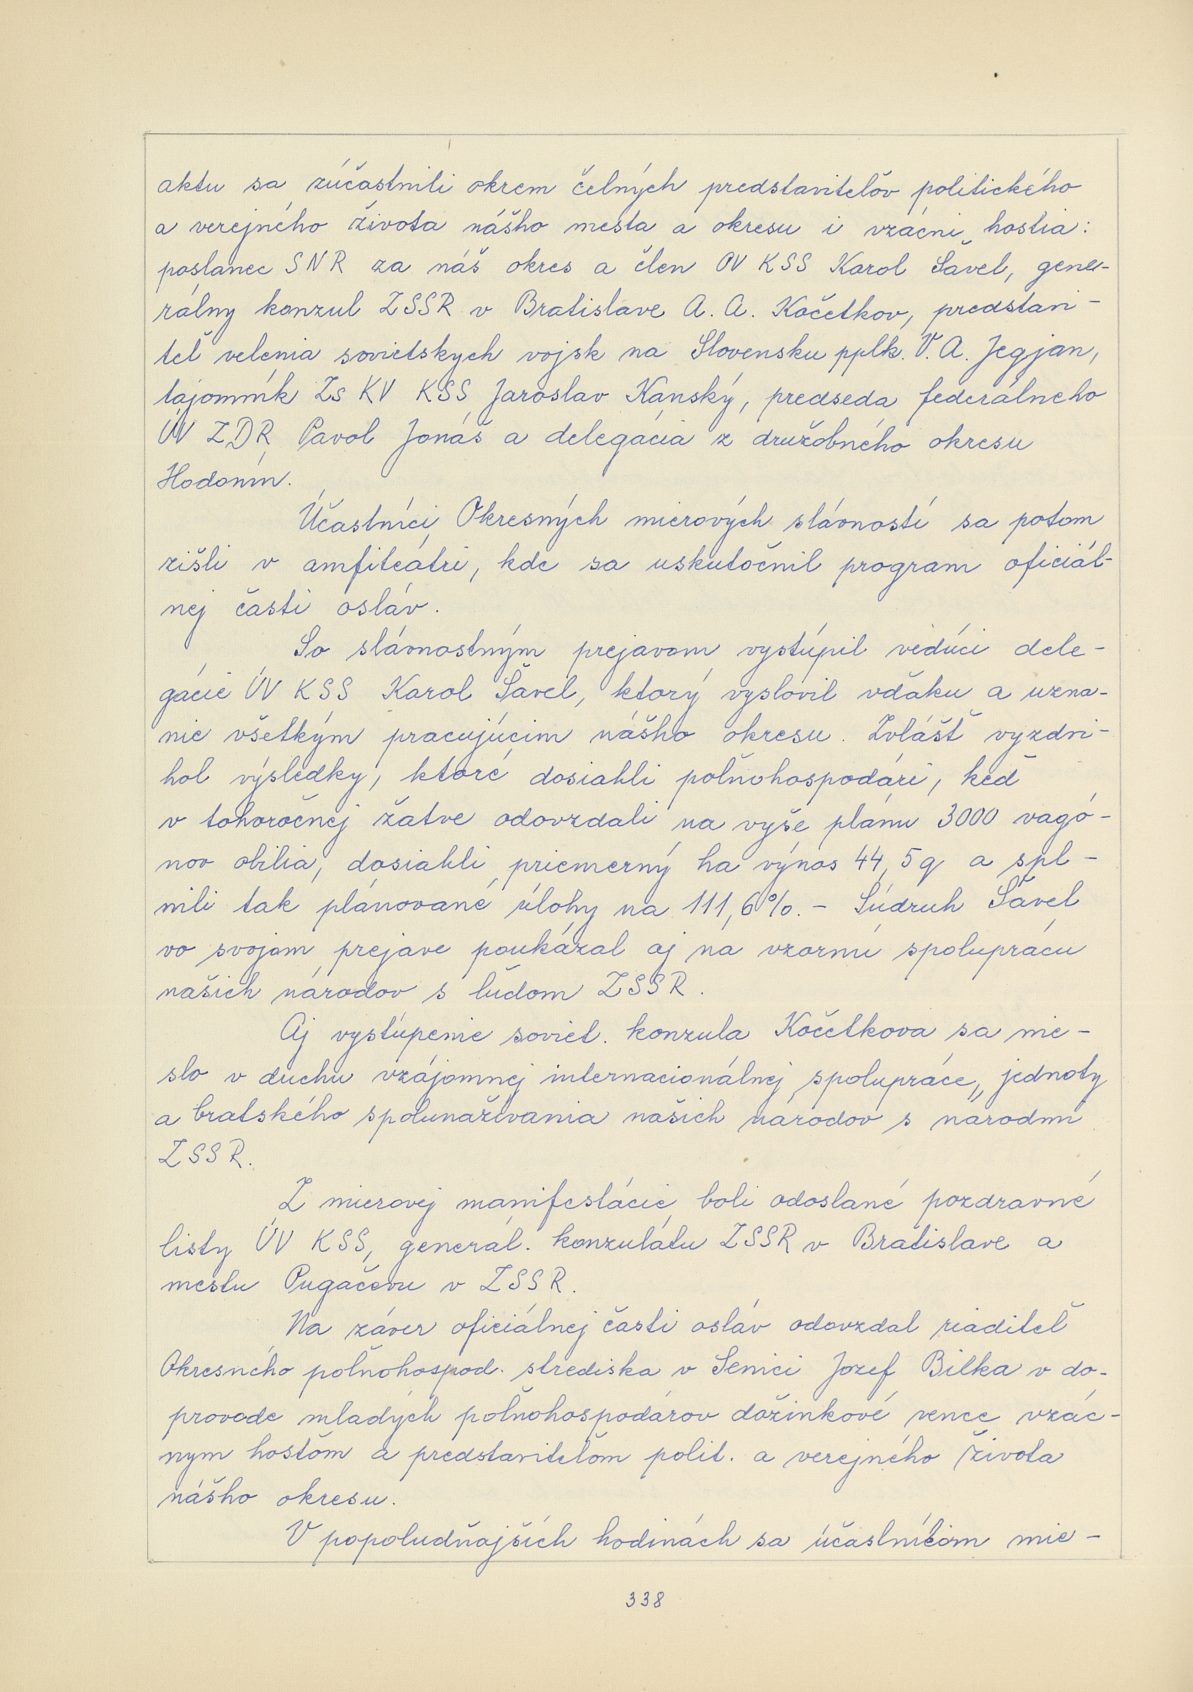 aktu sa zúčastnili okrem čelných predstaviteľov politického
a verejného života nášho mesta a okresu i vzácni hostia:
poslanec SNR za náš okres a člen ÚV KSS Karol Šavel, gene-
rálny konzul ZSSR v Bratislave A. A. Kočetkov, predstavi-
teľ velenia sovietskych vojsk na Slovensku pplk. V. A. Jegjan,
tajomník Zs KV KSS Jaroslav Kánský, predseda federálneho
ÚV ZDR Pavol Jonáš a delegácia z družobného okresu
Hodonín.
Účastníci Okresných mierových slávností sa potom
zišli v amfiteátri, kde sa uskutočnil program oficiál-
nej časti osláv.
So slávnostným prejavom vystúpil vedúci dele-
gácie ÚV KSS Karol Šavel, ktorý vyslovil vďaku a uzna-
nie všetkým pracujúcim nášho okresu. Zvlášť vyzdvi-
hol výsledky, ktoré dosiahli poľnohospodári, keď
v tohoročnej žatve odovzdali na vyše plánu 3000 vagó-
nov obilia, dosiahli priemerný ha výnos 44,5 q a spl-
nili tak plánované úlohy na 111,6%. - Súdruh Šavel
vo svojom prejave poukázal aj na vzornú spoluprácu
našich národov s ľudom ZSSR.
Aj vystúpenie soviet. konzula Kočetkova sa nie-
slo v duchu vzájomnej internacionálnej spolupráce, jednoty
a bratského spolunažívania našich národov s národmi
ZSSR.
Z mierovej manifestácie boli odoslané pozdravné
listy ÚV KSS, generál. konzulátu ZSSR v Bratislave a
mestu Pugačevu v ZSSR.
Na záver oficiálnej časti osláv odovzdal riaditeľ
Okresného poľnohospod. strediska v Senici Jozef Bilka v do-
provode mladých poľnohospodárov dožinkové vence vzác-
nym hosťom a predstaviteľom polit. a verejného života
nášho okresu.
V popoludňajších hodinách sa účastníkom mie-
338